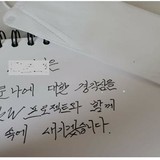 은
루나에 대한 경각심을
W 프로젝트와 함께
속에 새기겠습니다.